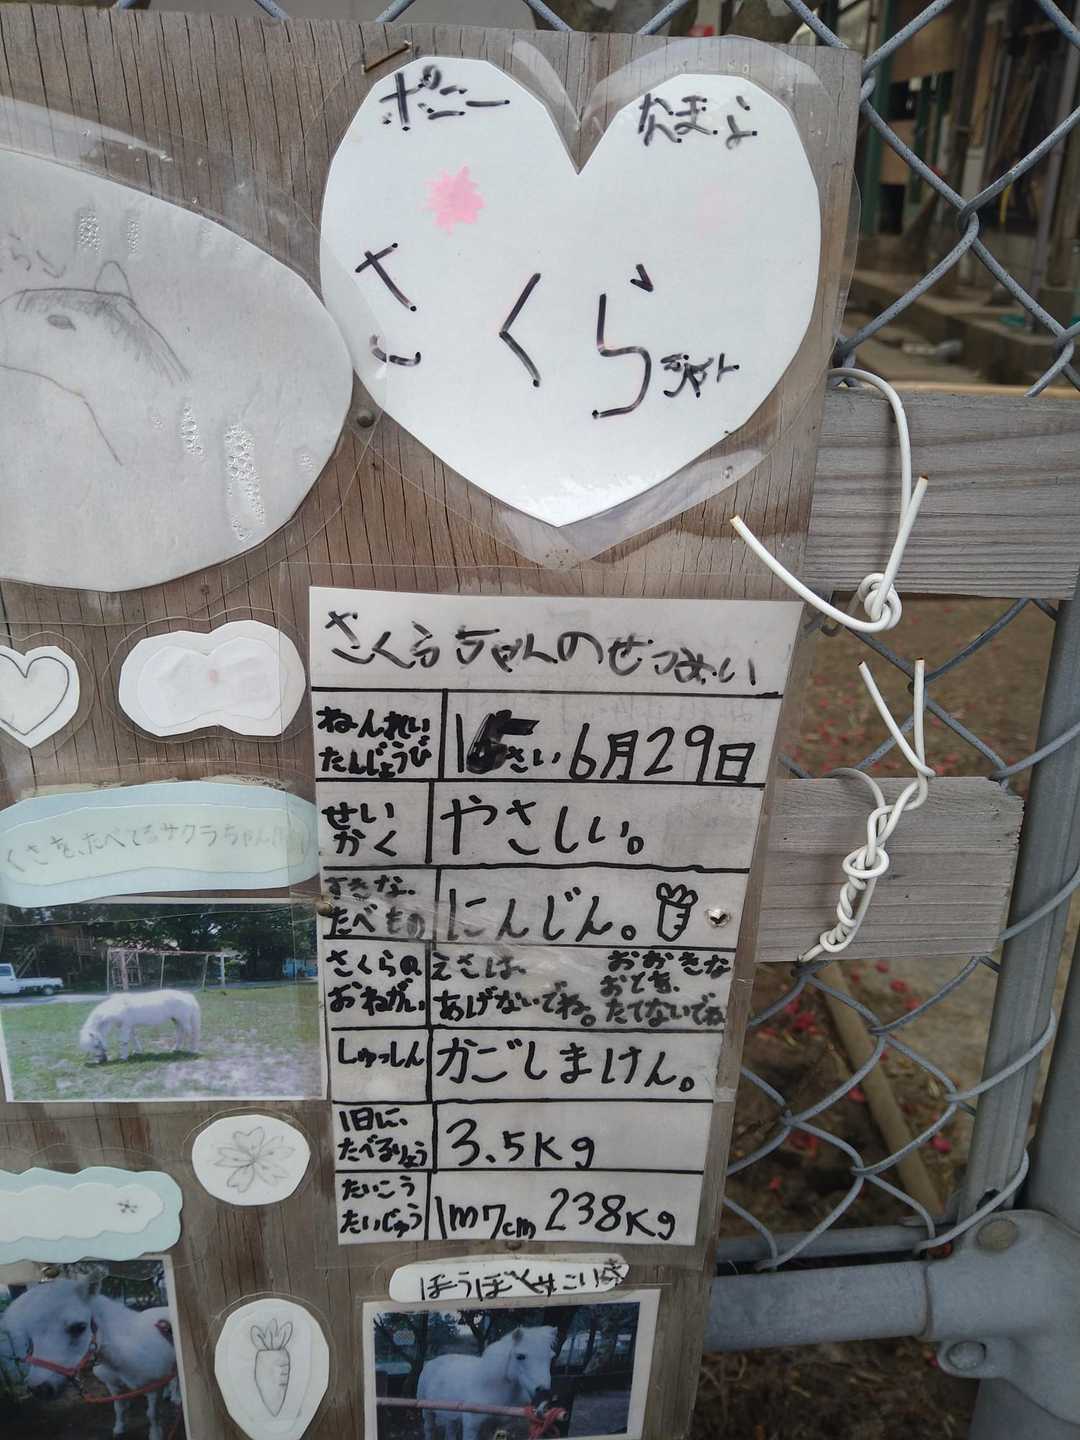 ポニー
なまえ
さくら
さくらちゃんのせつめい
ねんれい
たんじょうび
15さい 6月29日
せいかく
やさしい。
すきな
たべもの
にんじん。
さくらの
おねがい
えさは、
あげないでね。
おおきな
おとを、
たてないでね
しゅっしん
かごしまけん。
1日に、
たべるりょう
3.5Kg
たいこう
たいじゅう
1m7cm 238Kg
くさを、たべてるサクラちゃん